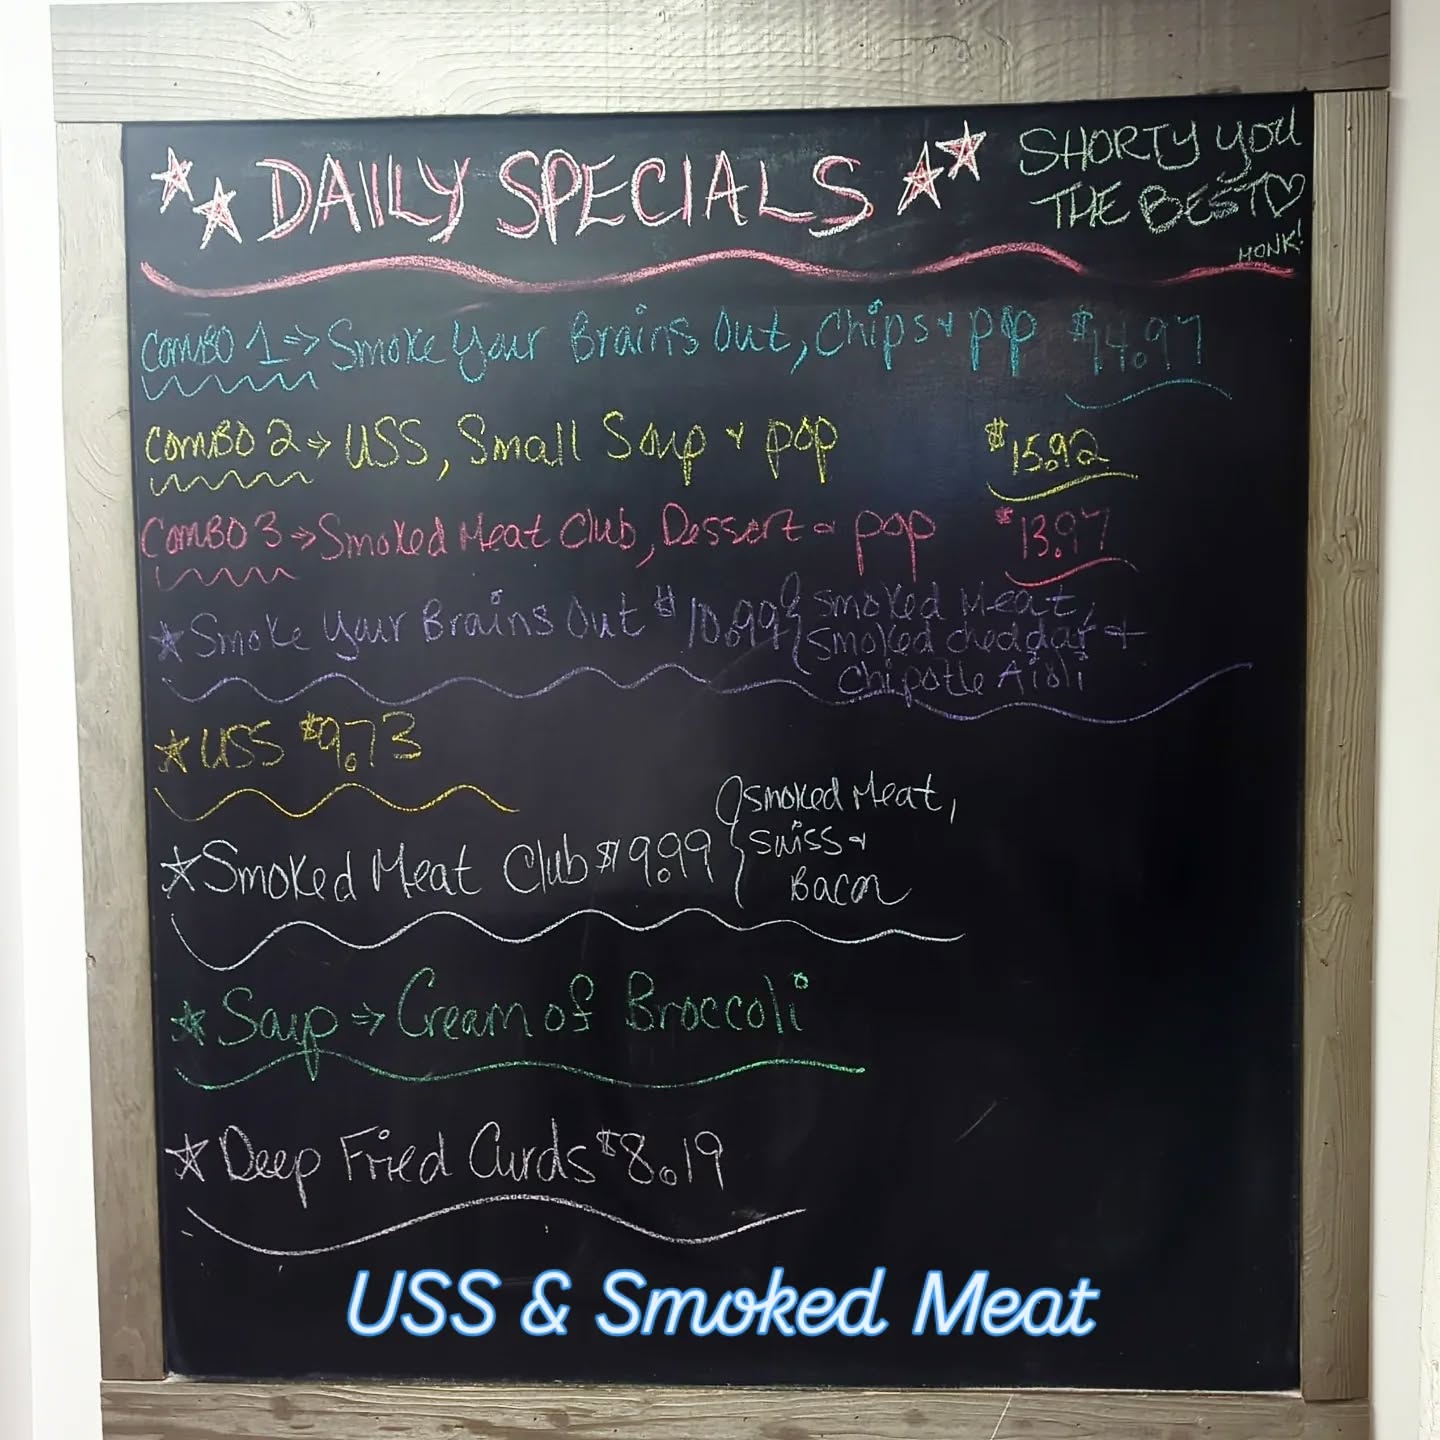 DAILY SPECIALS
SHORTY YOU
THE BEST♡
HONK!
COMBO 1 => Smoke Your Brains Out, Chips & pop $14.97
COMBO 2 => USS, Small Soup & pop $15.92
COMBO 3 => Smoked Meat Club, Dessert & pop $13.97
Smoke Your Brains Out $10.99 { Smoked Meat,
Smoked cheddar &
Chipotle Aioli
USS $9.73
Smoked Meat Club $9.99 { Smoked Meat,
Swiss &
Bacon
Soup => Cream of Broccoli
Deep Fried Curds $8.19
USS & Smoked Meat